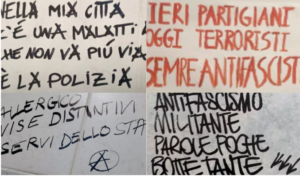 NELLA MIA CITTÀ
C'È UNA MALATTI
HE NON VA PIÚ VIA
È LA POLIZIA
IERI PARTIGIANI
OGGI TERRORISTI
SEMPRE ANTIFASCIST
ALLERGICO
VISE DISTINTIVI
SERVI DELLO STA
A
ANTIFASCISMO
MILITANTE
PAROLE POCHE
BOTTE TANTE